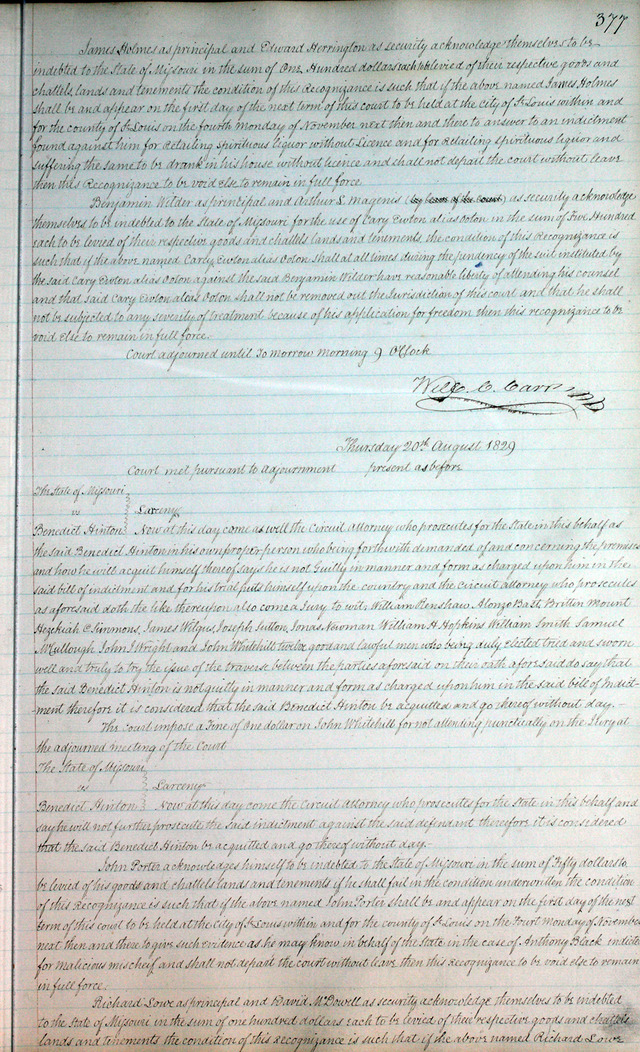 377
James Holmes as principal and Edward Herrington as security acknowledge themselves to be
indebted to the State of Missouri in the sum of One Hundred dollars each to be levied of their respective goods and
chattels lands and tenements the condition of this Recognizance is such that if the above named James Holmes
shall be and appear on the first day of the next term of this court to be held at the city of St Louis within and
for the county of St Louis on the fourth monday of November next then and there to answer to an indictment
found against him for Retailing Spirituous liquor without Licence and for Retailing spirituous liquor and
suffering the same to be drank in his house without licence and shall not depart the court without leave
then this Recognizance to be void else to remain in full force
Benjamin Wilder as principal and Arthur L Magenes (by leave of the court) as security acknowledge
themselves to be indebted to the State of Missouri for the use of Cary Ewton alias Oolon in the sum of Five Hundred
each to be levied of their respective goods and chattels lands and tenements the condition of this Recognizance is
such that if the above named Carey Ewton alias Oolon shall at all times during the pendency of the suit instituted by
the said Cary Ewton alias Oolon against the said Benjamin Wilder have reasonable liberty of attending his counsel
and that said Cary Ewton alias Oolon shall not be removed out the Jurisdiction of this court and that he shall
not be subjected to any severity of treatment because of his application for freedom then this recognizance to be
void else to remain in full force.
Court adjourned until To morrow morning 9 O'Clock
Will. C. Carr
Thursday 20th August 1829
Court met pursuant to adjournment present as before
The State of Missouri
vs Larceny
Benedict Hinton Now at this day come as will the Circuit Attorney who prosecutes for the State in this behalf as
the said Benedict Hinton in his own proper person who being forthwith demanded of and concerning the premises
and how he will acquit himself thereof says he is not Guilty in manner and form as charged upon him in the
said bill of indictment and for his trial puts himself upon the country and the Circuit attorney who prosecutes
as aforesaid doth the like thereupon also come a Jury to wit, William Renshaw Alonzo Bast, Brittin Mount
Hezekiah C. Simmons, James Wilgus, Joseph Sutton, Jonas Newman William H. Hopkins William Smith Samuel
McCullough John J Wright and John Whitehill twelve good and lawful men who being duly elected tried and sworn
well and truly to try the issue of the traverse between the parties aforesaid on their oath aforesaid do say that
the said Benedict Hinton is not guilty in manner and form as charged upon him in the said bill of Indict-
ment therefore it is considered that the said Benedict Hinton be acquitted and go thereof without day.
The Court impose a Fine of One dollar on John Whitehill for not attending punctually on the Jury at
the adjourned meeting of the Court
The State of Missouri
vs Larceny
Benedict Hinton Now at this day come the Circuit Attorney who prosecutes for the State in this behalf and
say he will not further prosecute the said indictment against the said defendant therefore it is considered
that the said Benedict Hinton be acquitted and go thereof without day.
John Porter acknowledges himself to be indebted to the State of Missouri in the sum of Fifty dollars to
be levied of his goods and chattels lands and tenements if he shall fail in the condition underwritten the condition
of this Recognizance is such that if the above named John Porter shall be and appear on the first day of the next
term of this court to be held at the City of St Louis within and for the county of St Louis on the Fourt Monday of November
next then and there to give such evidence as he may know in behalf of the state in the case of Anthony Black indicted
for malicious mischeif and shall not depart the court without leave then this Recognizance to be void else to remain
in full force.
Richard Lowe as principal and David McDowell as security acknowledge themselves to be indebted
to the State of Missouri in the sum of one hundred dollars each to be levied of their respective goods and chattels
lands and tenements the condition of this Recognizance is such that if the above named Richard Lowe